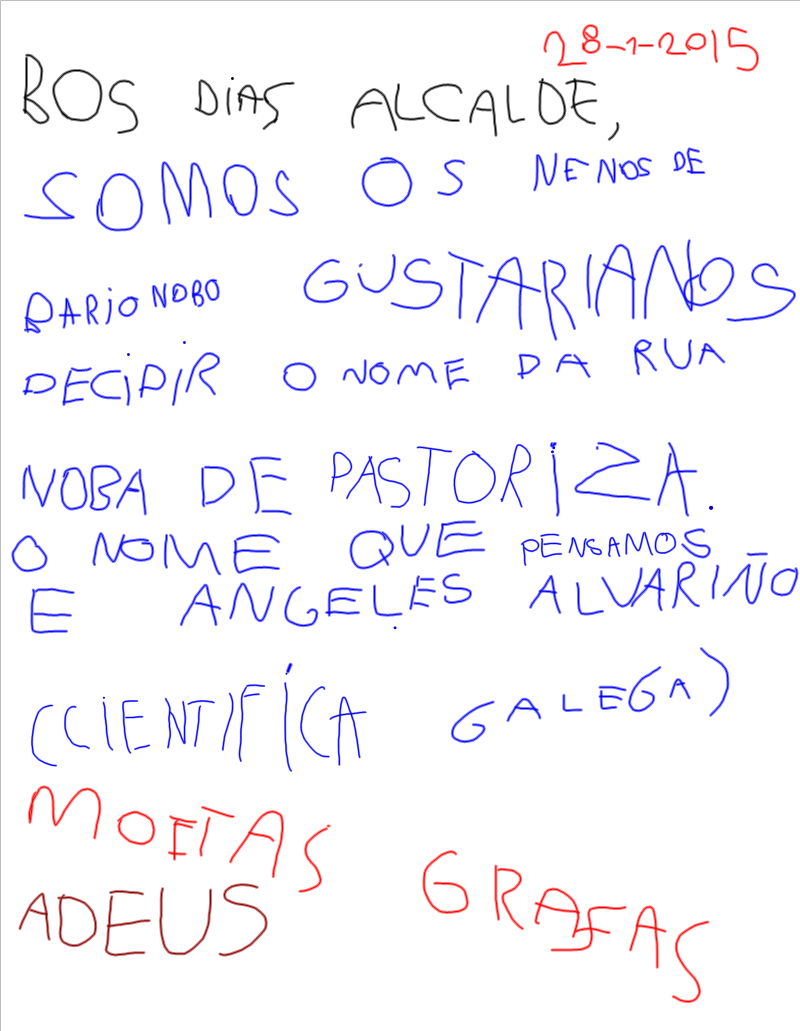 28-1-2015
BOS DIAS ALCALDE,
SOMOS OS NENOS DE
DARIO NOBO GUSTARIANOS
DECIDIR O NOME DA RUA
NOBA DE PASTORIZA.
O NOME QUE PENSAMOS
E ANGELES ALVARIÑO
(CIENTIFÍCA GALEGA)
MOITAS GRAFAS
ADEUS